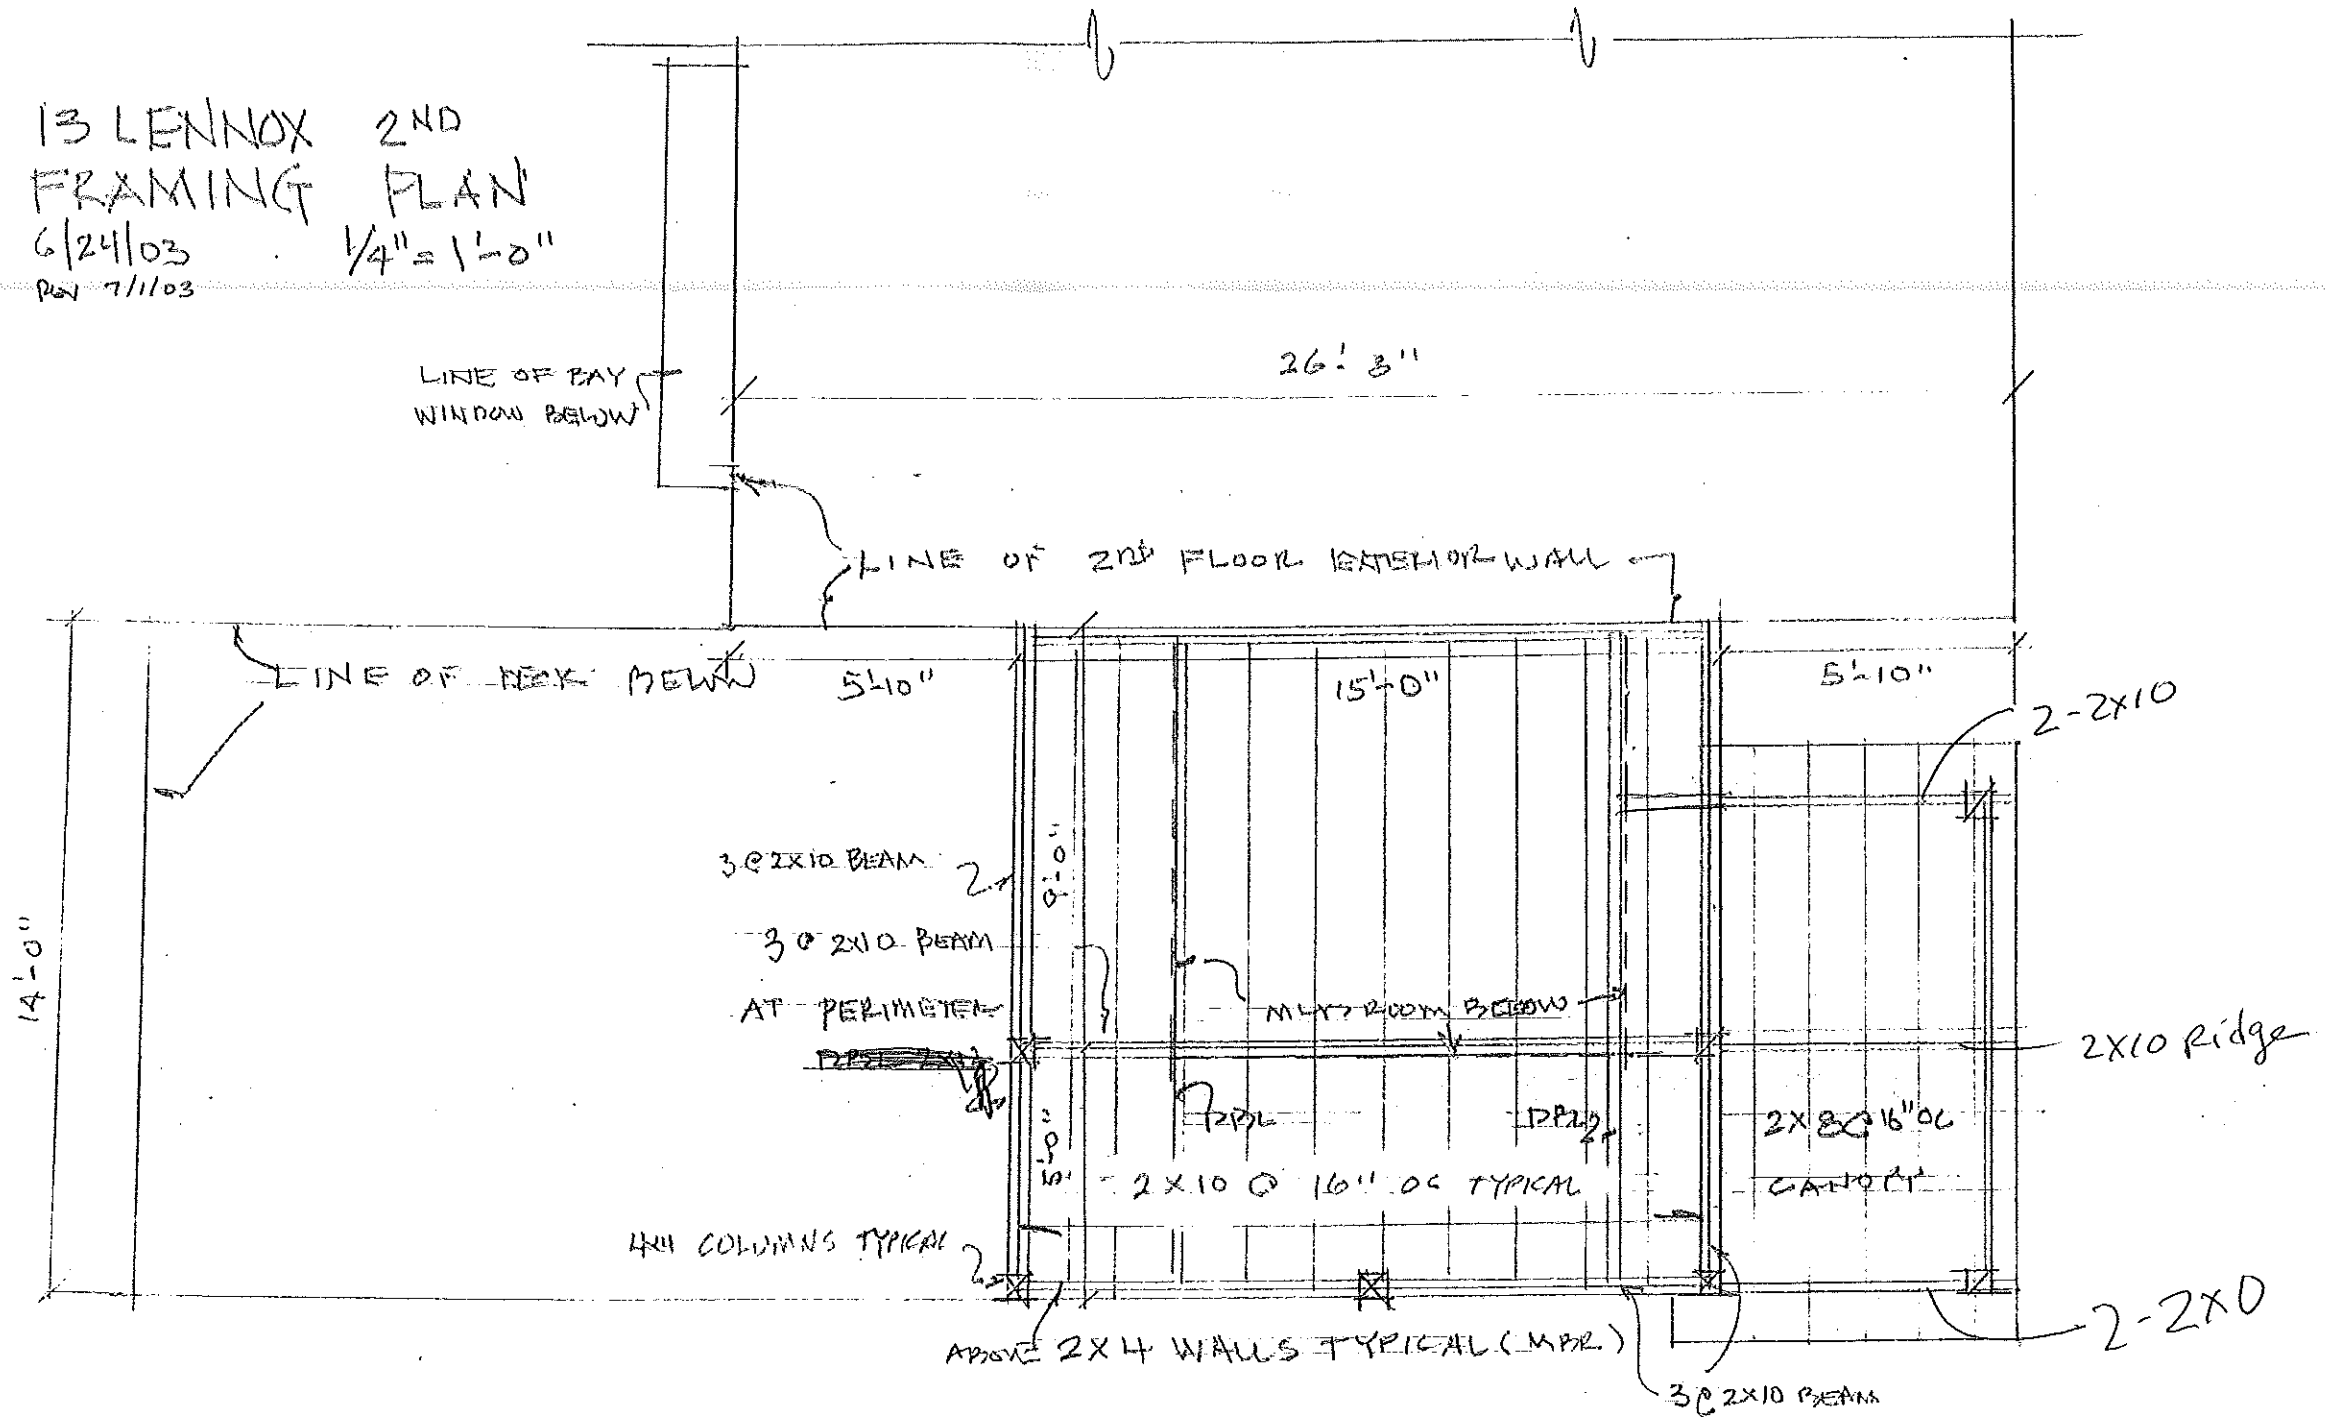 13 LENNOX 2ND
FRAMING PLAN
6/24/03 1/4" = 1'-0"
REV 7/1/03
26'-3"
LINE OF BAY
WINDOW BELOW
LINE OF 2ND FLOOR EXTERIOR WALL
LINE OF DECK BELOW
5'-10"
15'-0"
5'-10"
2-2X10
3@2X10 BEAM
9'-0"
3@2X10 BEAM
AT PERIMETER
14'-0"
MUDROOM BELOW
2X10 Ridge
DBL
DBL
5'-0"
2X8@16"OC
CANOPY
2X10 @ 16" OC TYPICAL
4X4 COLUMNS TYPICAL
ABOVE 2X4 WALLS TYPICAL (MBR)
2-2X0
3@2X10 BEAM